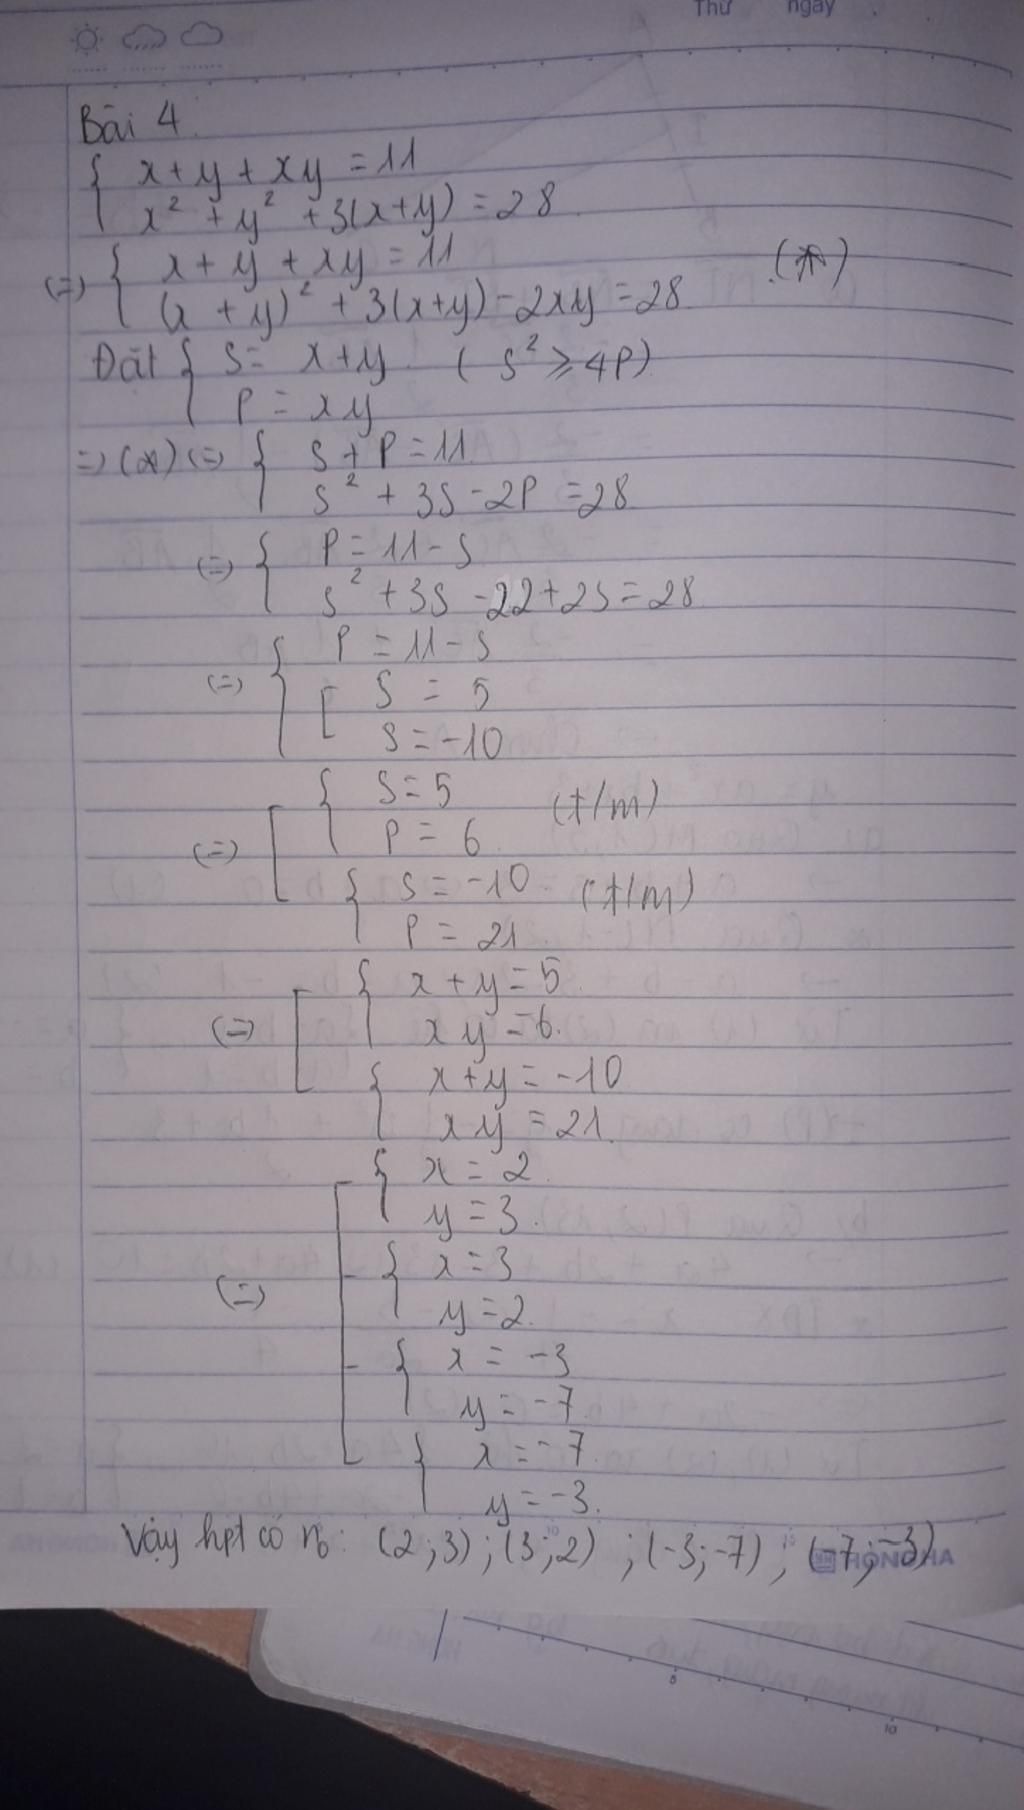 Thứ ngày
Bài 4.
{ x + y + xy = 11
x² + y² + 3(x+y) = 28
(=) { x + y + xy = 11 (*)
(x + y)² + 3(x+y) - 2xy = 28
Đặt { S = x+y (S² ≥ 4P)
P = xy
=> (*) (=) { S + P = 11
S² + 3S - 2P = 28
(=) { P = 11 - S
S² + 3S - 22 + 2S = 28
(=) { P = 11 - S
[ S = 5
S = -10
(=) [ { S = 5 (t/m)
P = 6
{ S = -10 (t/m)
P = 21
(=) [ { x + y = 5
xy = 6.
{ x+y = -10
xy = 21.
(=) [ { x = 2
y = 3.
{ x = 3
y = 2.
{ x = -3
y = -7
{ x = -7
y = -3.
Vậy hpt có n₀: (2;3); (3;2); (-3;-7); (-7;-3)
HONG HA
5
10